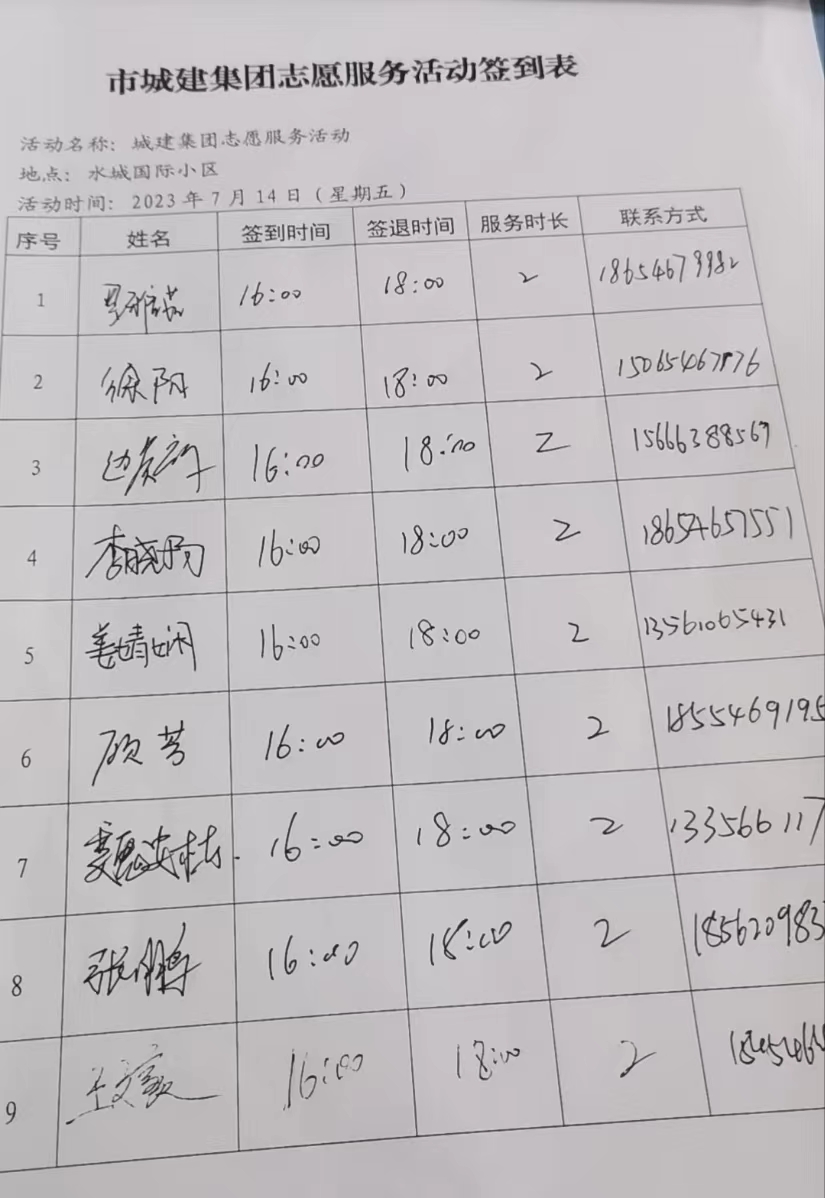 市城建集团志愿服务活动签到表
活动名称：城建集团志愿服务活动
地点：水城国际小区
活动时间：2023年7月14日（星期五）
序号 姓名 签到时间 签退时间 服务时长 联系方式
1 16:00 18:00 2
2 徐阳 16:00 18:00 2
3 16:00 18:00 2 15666388569
4 李晓杨 16:00 18:00 2 18654657551
5 姜婧娴 16:00 18:00 2 13561065431
6 顾芳 16:00 18:00 2 1855469195
7 16:00 18:00 2 133566117
8 张鹏 16:00 18:00 2 185620983
9 16:00 18:00 2